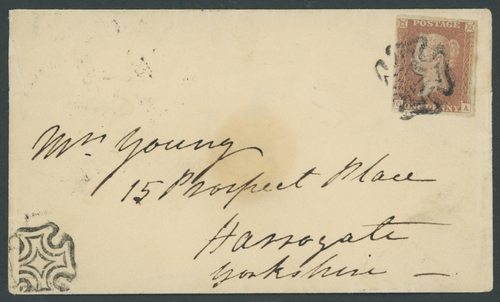 POSTAGE
PENNY A
Mrs Young
15 Prospect Place
Harrogate
Yorkshire —